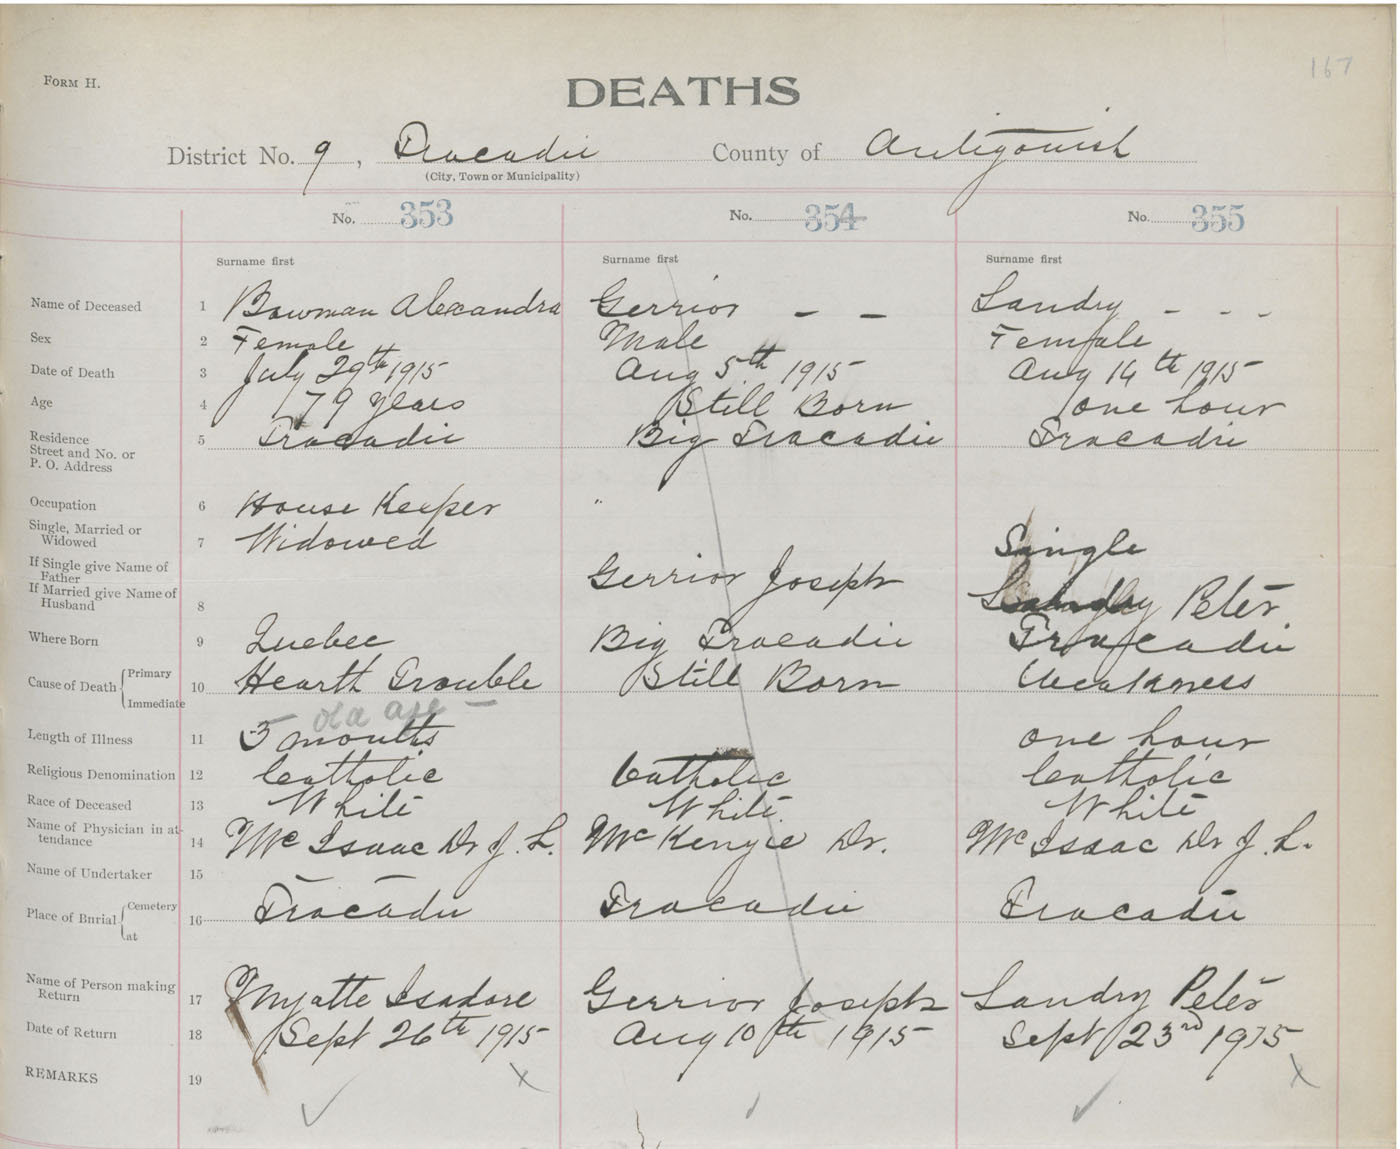 167
FORM H.
DEATHS
District No. 9, Tracadie County of Antigonish
(City, Town or Municipality)
No. 353 No. 354 No. 355
Surname first Surname first Surname first
Name of Deceased 1 Bowman Alexandra Gerrior - - Landry - - -
Sex 2 Female Male Female
Date of Death 3 July 29th 1915 Aug 5th 1915 Aug 14th 1915
Age 4 79 years Still Born one hour
Residence
Street and No. or
P. O. Address
5 Tracadie Big Tracadie Tracadie
Occupation 6 House Keeper "
Single, Married or
Widowed
7 Widowed Single
If Single give Name of
Father
If Married give Name of
Husband
8 Gerrior Joseph Landry Peter
Where Born 9 Quebec Big Tracadie Tracadie
Cause of Death { Primary
Immediate
10 Hearth Trouble Still Born Weakness
- old age -
Length of Illness 11 3 months one hour
Religious Denomination 12 Catholic Catholic Catholic
Race of Deceased 13 White White. White
Name of Physician in at-
tendance
14 McIsaac Dr J. L. McKenzie Dr. McIsaac Dr J. L.
Name of Undertaker 15
Place of Burial { Cemetery
at
16 Tracadie Tracadie Tracadie
Name of Person making
Return
17 Myatte Isadore Gerrior Joseph Landry Peter
Date of Return 18 Sept 26th 1915 Aug 10th 1915 Sept 23rd 1915
REMARKS 19